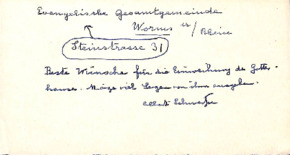 Evangelische Gesamtgemeinde
Worms a/Rhein
Steinstrasse 31
Beste Wünsche für die Einweihung des Gottes-
hauses. Möge viel Segen von ihm ausgehen.
Albert Schweitzer